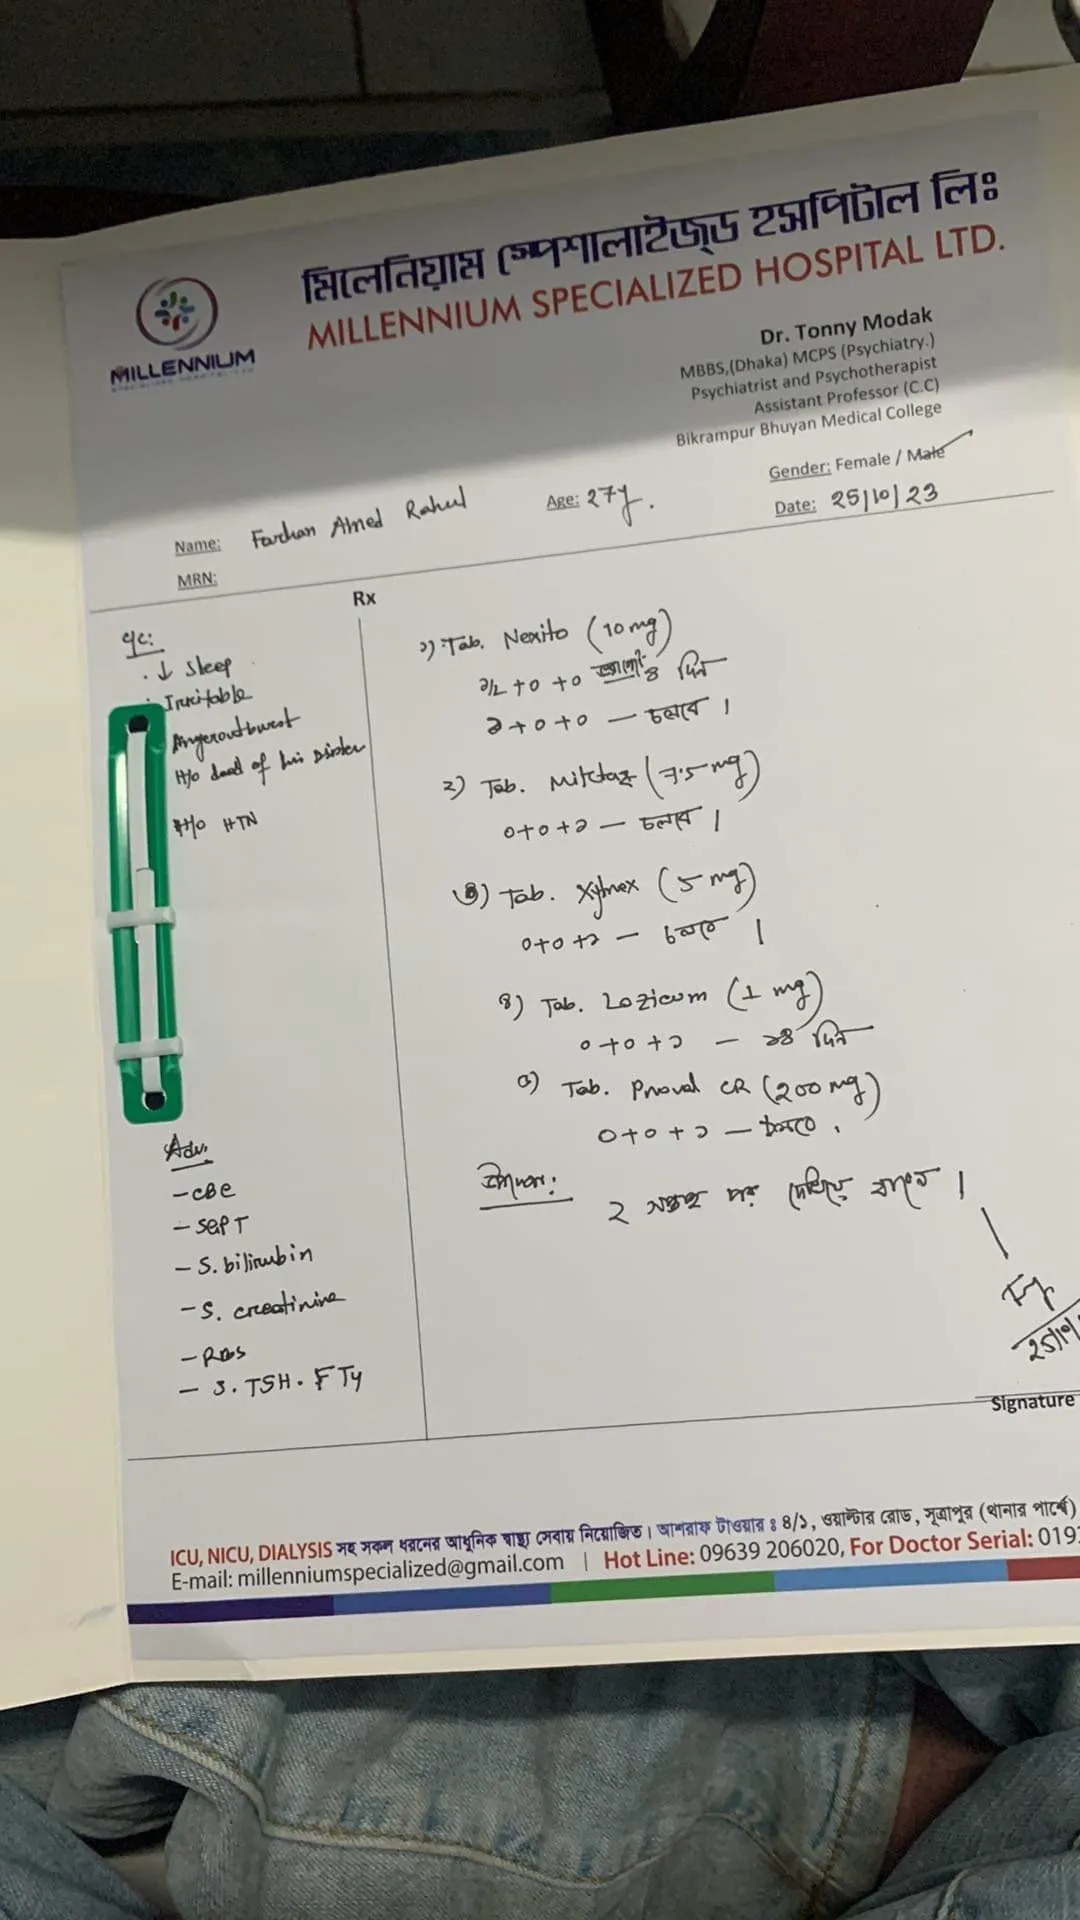 মিলেনিয়াম স্পেশালাইজ্‌ড হসপিটাল লিঃ
MILLENNIUM SPECIALIZED HOSPITAL LTD.
MILLENNIUM
SPECIALIZED HOSPITAL LTD
Dr. Tonny Modak
MBBS,(Dhaka) MCPS (Psychiatry.)
Psychiatrist and Psychotherapist
Assistant Professor (C.C)
Bikrampur Bhuyan Medical College
Gender: Female / Male
Name: Farhan Ahmed Rahul Age: 27y. Date: 25/10/23
MRN:
Rx
C/C:
↓ Sleep
Irritable
Angeroutburst
H/o dead of his sister
H/o HTN
Adv.
- CBC
- SGPT
- S. bilirubin
- S. creatinine
- RBS
- S. TSH. FT4
১) Tab. Nexito (10 mg)
১/২ + ০ + ০ ৪ দিন
১ + ০ + ০ — চলবে।
২) Tab. Mirtaz (7.5 mg)
০ + ০ + ১ — চলবে।
৩) Tab. Xylnex (5 mg)
০ + ০ + ১ — চলবে।
৪) Tab. Lozicum (1 mg)
০ + ০ + ১ — ১৪ দিন
৫) Tab. Proval CR (200 mg)
০ + ০ + ১ — চলবে।
২ সপ্তাহ পর দেখিয়ে যাবেন।
Signature
ICU, NICU, DIALYSIS সহ সকল ধরনের আধুনিক স্বাস্থ্য সেবায় নিয়োজিত। আশরাফ টাওয়ার ঃ ৪/১, ওয়াল্টার রোড, সূত্রাপুর (থানার পার্শ্বে)
E-mail: millenniumspecialized@gmail.com | Hot Line: 09639 206020, For Doctor Serial: 019